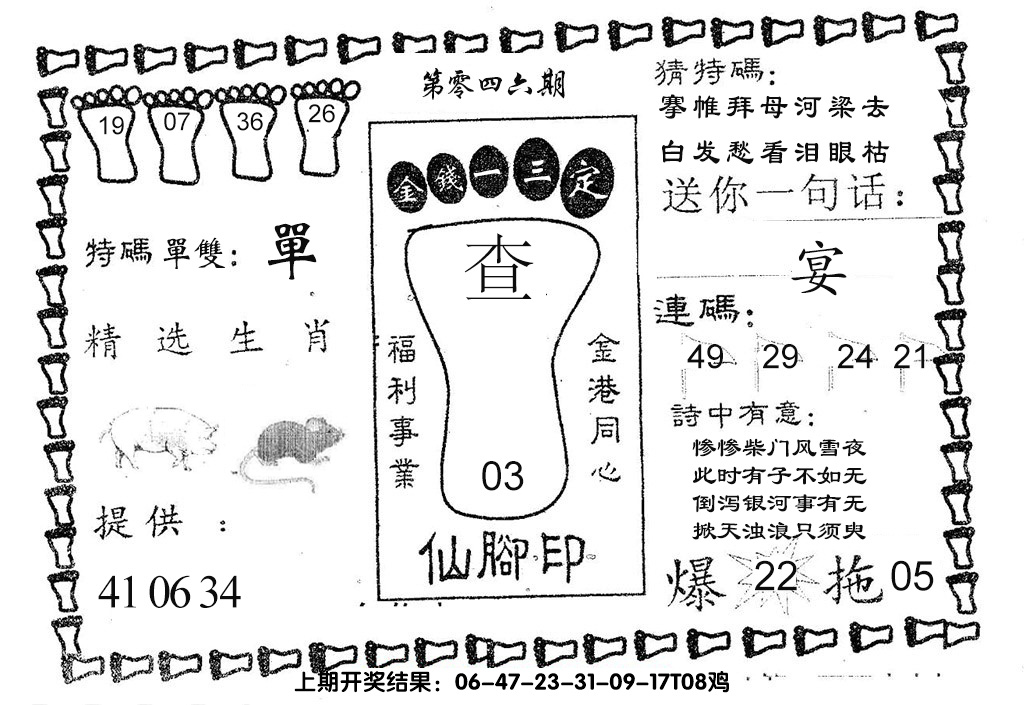 第零四六期
19 07 36 26
特碼單雙：單
精选生肖
提供：
41 06 34
金錢一三定
查
福利事業
金港同心
03
仙腳印
猜特碼：
搴帷拜母河梁去
白发愁看泪眼枯
送你一句话：
宴
連碼：
49 29 24 21
詩中有意：
惨惨柴门风雪夜
此时有子不如无
倒泻银河事有无
掀天浊浪只须臾
爆 22 拖 05
上期开奖结果：06-47-23-31-09-17T08鸡